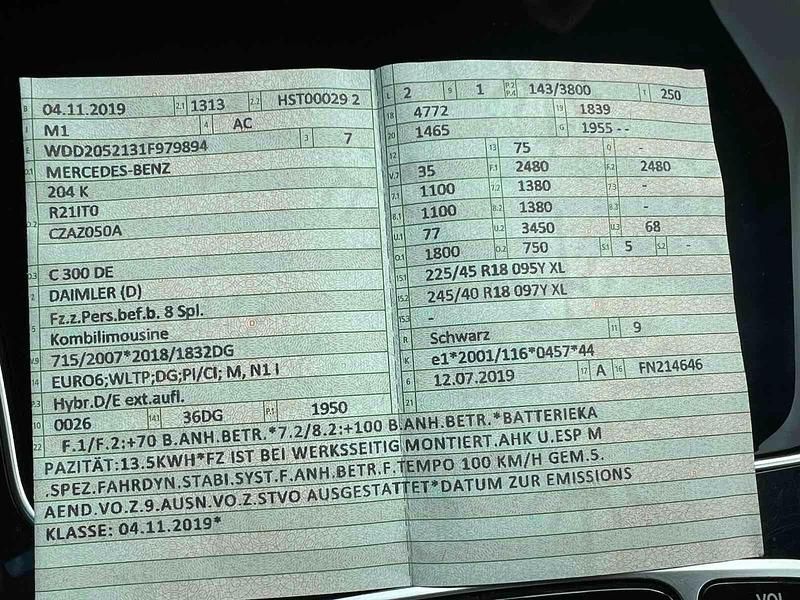 B 04.11.2019 2.1 1313 2.2 HST00029 2
J M1 4 AC
E WDD2052131F979894 3 7
D.1 MERCEDES-BENZ
204 K
R21IT0
D.2 CZAZ050A
D.3 C 300 DE
2 DAIMLER (D)
Fz.z.Pers.bef.b. 8 Spl.
5 Kombilimousine
V.9 715/2007*2018/1832DG
14 EURO6;WLTP;DG;PI/CI; M, N1 I
P.3 Hybr.D/E ext.aufl.
10 0026 14.1 36DG P.1 1950
L 2 9 1 P.2 P.4 143/3800 T 250
18 4772 19 1839
20 1465 G 1955 - -
12 13 75 Q -
V.7 35 F.1 2480 F.2 2480
7.1 1100 7.2 1380 7.3 -
8.1 1100 8.2 1380 8.3 -
U.1 77 U.2 3450 U.3 68
O.1 1800 O.2 750 S.1 5 S.2 -
15.1 225/45 R18 095Y XL
15.2 245/40 R18 097Y XL
15.3 -
R Schwarz 11 9
K e1*2001/116*0457*44
6 12.07.2019 17 A 16 FN214646
21
22 F.1/F.2:+70 B.ANH.BETR.*7.2/8.2:+100 B.ANH.BETR.*BATTERIEKA
PAZITÄT:13.5KWH*FZ IST BEI WERKSSEITIG MONTIERT.AHK U.ESP M
.SPEZ.FAHRDYN.STABI.SYST.F.ANH.BETR.F.TEMPO 100 KM/H GEM.5.
AEND.VO.Z.9.AUSN.VO.Z.STVO AUSGESTATTET*DATUM ZUR EMISSIONS
KLASSE: 04.11.2019*
VOL